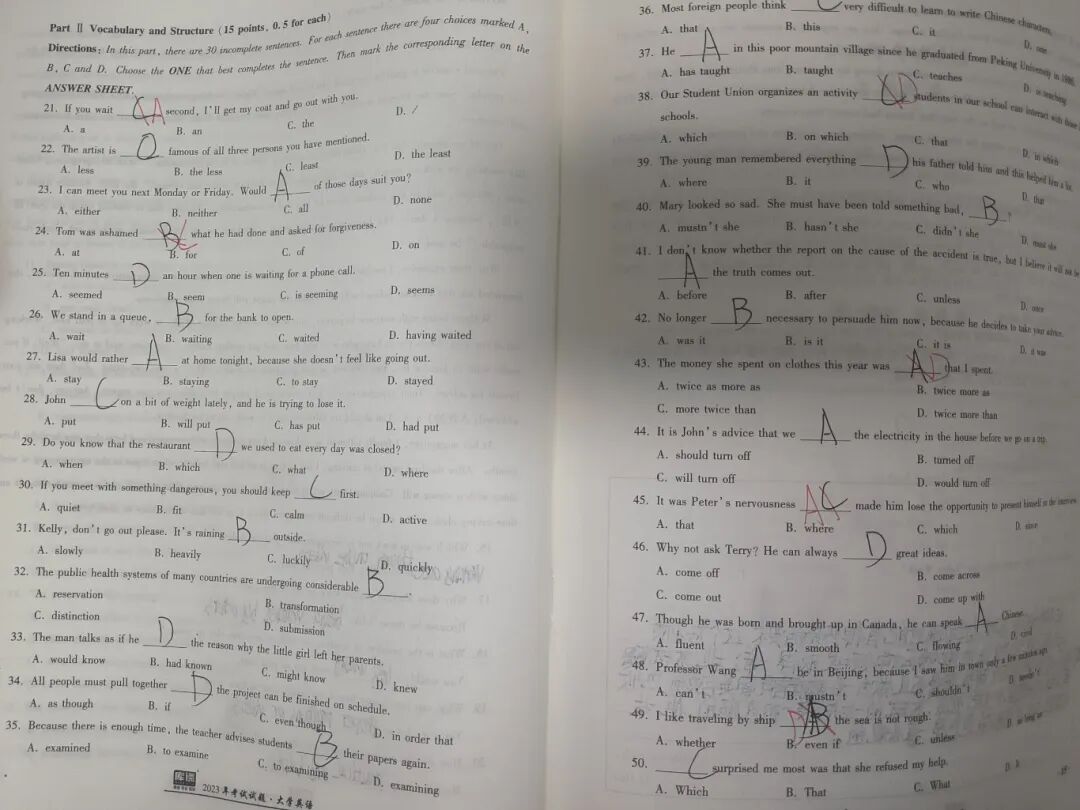 Part Ⅱ Vocabulary and Structure (15 points, 0.5 for each)
Directions: In this part, there are 30 incomplete sentences. For each sentence there are four choices marked A,
B, C and D. Choose the ONE that best completes the sentence. Then mark the corresponding letter on the
ANSWER SHEET.
21. If you wait C A second, I'll get my coat and go out with you.
A. a B. an C. the D. /
22. The artist is ___ famous of all three persons you have mentioned.
A. less B. the less C. least D. the least
23. I can meet you next Monday or Friday. Would A of those days suit you?
A. either B. neither C. all D. none
24. Tom was ashamed B C what he had done and asked for forgiveness.
A. at B. for C. of D. on
25. Ten minutes D an hour when one is waiting for a phone call.
A. seemed B. seem C. is seeming D. seems
26. We stand in a queue, B for the bank to open.
A. wait B. waiting C. waited D. having waited
27. Lisa would rather A at home tonight, because she doesn't feel like going out.
A. stay B. staying C. to stay D. stayed
28. John C on a bit of weight lately, and he is trying to lose it.
A. put B. will put C. has put D. had put
29. Do you know that the restaurant D we used to eat every day was closed?
A. when B. which C. what D. where
30. If you meet with something dangerous, you should keep C first.
A. quiet B. fit C. calm D. active
31. Kelly, don't go out please. It's raining B outside.
A. slowly B. heavily C. luckily D. quickly
32. The public health systems of many countries are undergoing considerable B.
A. reservation B. transformation
C. distinction D. submission
33. The man talks as if he D the reason why the little girl left her parents.
A. would know B. had known C. might know D. knew
34. All people must pull together D the project can be finished on schedule.
A. as though B. if C. even though D. in order that
35. Because there is enough time, the teacher advises students B their papers again.
A. examined B. to examine C. to examining D. examining
2023年考试试题·大学英语
36. Most foreign people think C very difficult to learn to write Chinese characters.
A. that B. this C. it D. one
37. He A in this poor mountain village since he graduated from Peking University in 1986.
A. has taught B. taught C. teaches D. is teaching
38. Our Student Union organizes an activity D students in our school can interact with those
schools.
A. which B. on which C. that D. in which
39. The young man remembered everything D his father told him and this helped him a lot.
A. where B. it C. who D. that
40. Mary looked so sad. She must have been told something bad, B ?
A. mustn't she B. hasn't she C. didn't she D. must she
41. I don't know whether the report on the cause of the accident is true, but I believe it will not be
A the truth comes out.
A. before B. after C. unless D. once
42. No longer B necessary to persuade him now, because he decides to take your advice.
A. was it B. is it C. it is D. it was
43. The money she spent on clothes this year was A D that I spent.
A. twice as more as B. twice more as
C. more twice than D. twice more than
44. It is John's advice that we A the electricity in the house before we go on a trip.
A. should turn off B. turned off
C. will turn off D. would turn off
45. It was Peter's nervousness A C made him lose the opportunity to present himself in the interview
A. that B. where C. which D. since
46. Why not ask Terry? He can always D great ideas.
A. come off B. come across
C. come out D. come up with
47. Though he was born and brought up in Canada, he can speak A Chinese.
A. fluent B. smooth C. flowing
48. Professor Wang A be in Beijing, because I saw him in town only a few minutes ago.
A. can't B. mustn't C. shouldn't D. needn't
49. I like traveling by ship D B the sea is not rough.
A. whether B. even if C. unless D. as long as
50. C surprised me most was that she refused my help.
A. Which B. That C. What